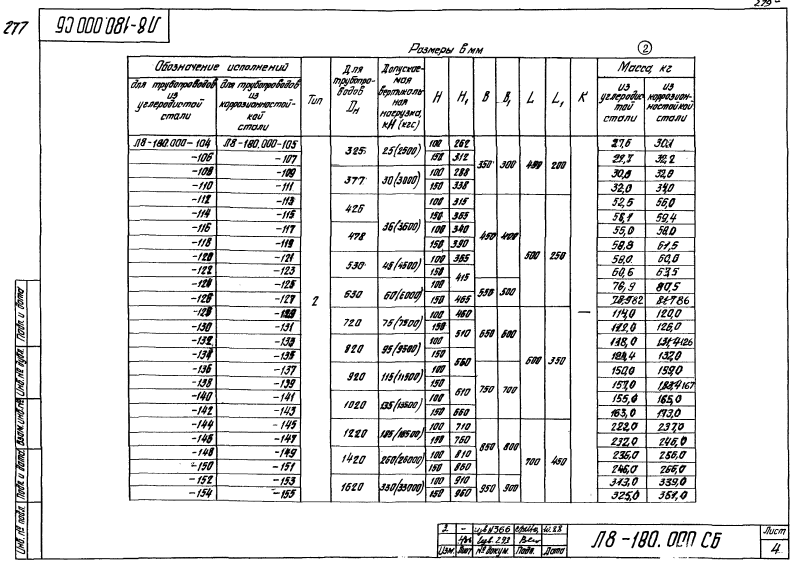 279
277
Л8-180.000 СБ
Размеры в мм
2
Обозначение исполнений
для трубопроводов из углеродистой стали
для трубопроводов из коррозионностойкой стали
Тип
Для трубопроводов Dн
Допускаемая вертикальная нагрузка, кН (кгс)
H H₁ B B₁ L L₁ K
Масса, кг
из углеродистой стали
из коррозионностойкой стали
Л8-180.000-104 Л8-180.000-105 2 325 25(2500) 100 262 350 300 200 — 27,6 30,1
-106 -107 150 312 32,2
-108 -109 377 30(3000) 100 288 30,8 32,8
-110 -111 150 338 32,0 34,0
-112 -113 426 36(3600) 100 315 450 400 500 250 52,6 56,0
-114 -115 150 365 58,1 59,4
-116 -117 478 100 340 55,0 58,0
-118 -119 150 390 58,8 61,5
-120 -121 530 45(4500) 100 365 58,0 60,8
-122 -123 150 415 60,6 63,5
-124 -125 630 60(6000) 100 550 500 76,9 80,5
-126 -127 150 465
-128 -129 720 75(7500) 100 460 650 600 600 350 114,0 120,0
-130 -131 150 510 126,0
-132 -133 820 95(9500) 100 118,0
-134 -135 150 560 132,0
-136 -137 920 115(11500) 100 750 700 150,0 159,0
-138 -139 150 610 157,0
-140 -141 1020 135(13500) 100 155,0 165,0
-142 -143 150 660 163,0 173,0
-144 -145 1220 185(18500) 100 710 850 800 700 450 222,0 237,0
-146 -147 150 760 232,0 246,0
-148 -149 1420 260(26000) 100 810 236,0 256,0
-150 -151 150 860 246,0 266,0
-152 -153 1620 330(33000) 100 910 950 900 313,0 339,0
-154 -155 150 960 325,0 351,0
Инв. № подл. Подп. и дата Взам. инв. № Инв. № дубл. Подп. и дата
2 -
Изм. Лист № докум. Подп. Дата
Л8-180.000 СБ
Лист
4